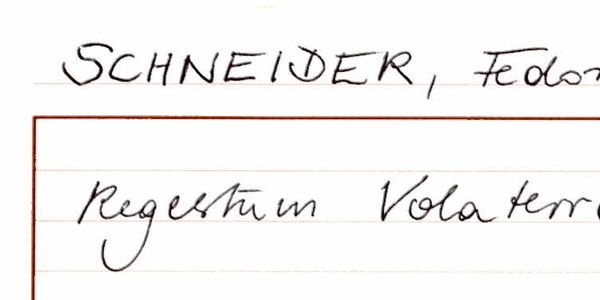 SCHNEIDER, Fedor
Regestum Volaterra